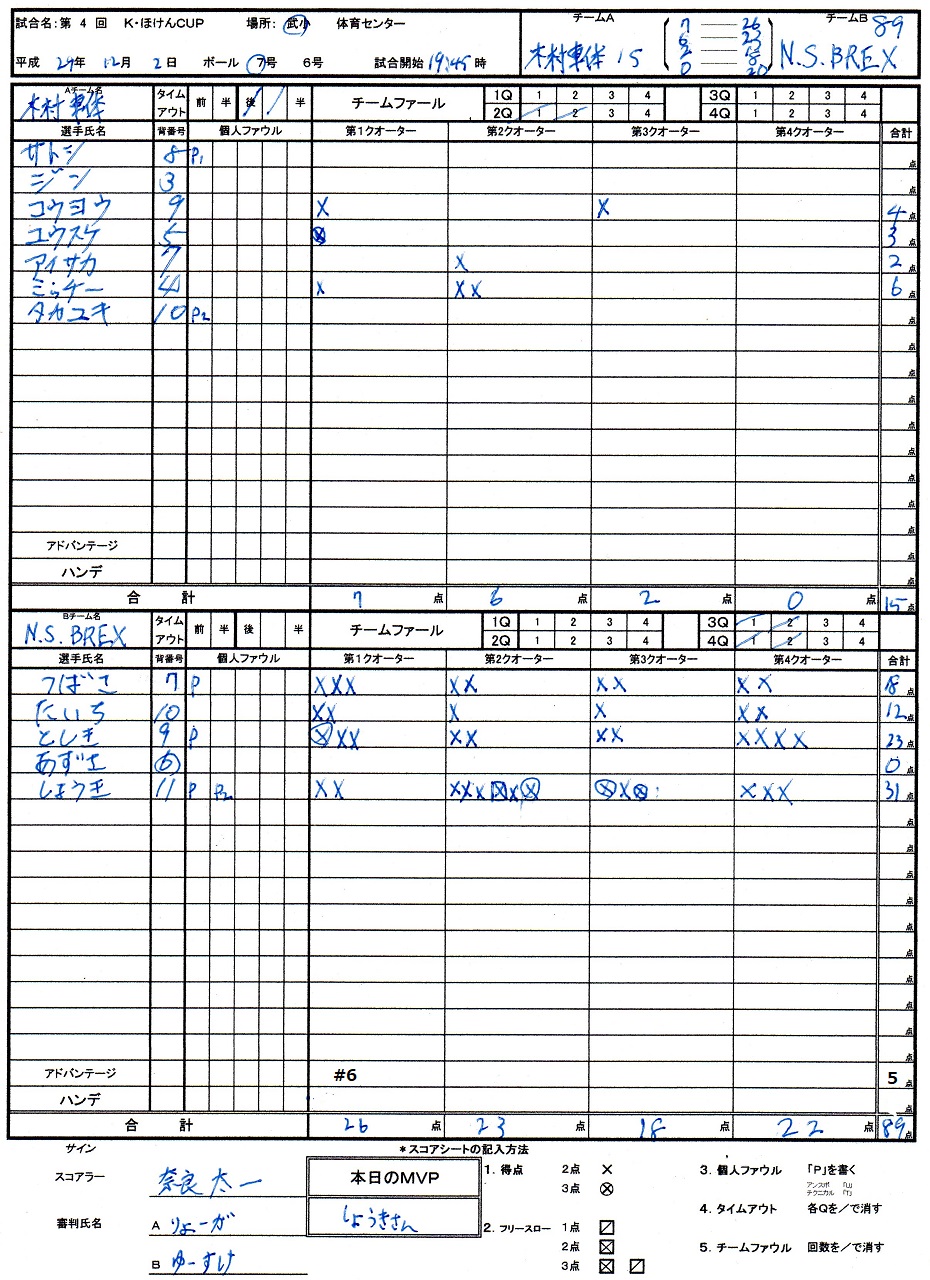 試合名：第 4 回 K・ほけんCUP 場所： 武小 体育センター チームA チームB 89
平成 29年 12月 2日 ボール 7号 6号 試合開始 19:45 時 木村車体 15 N.S.BREX
7 ― 26
6 ― 23
2 ― 18
0 ― 20
Aチーム名 木村車体 タイムアウト 前 半 後 半 チームファール 1Q 1 2 3 4 3Q 1 2 3 4
2Q 1 2 3 4 4Q 1 2 3 4
選手氏名 背番号 個人ファウル 第1クオーター 第2クオーター 第3クオーター 第4クオーター 合計
サトシ 8 P1 点
ジン 3 点
コウヨウ 9 X X 4点
ユウスケ 5 ⊗ 3点
アイサカ 7 X 2点
ミッチー 4 X XX 6点
タカユキ 10 P2 点
アドバンテージ 点
ハンデ 点
合 計 7 点 6 点 2 点 0 点 15点
Bチーム名 N.S.BREX タイムアウト 前 半 後 半 チームファール 1Q 1 2 3 4 3Q 1 2 3 4
2Q 1 2 3 4 4Q 1 2 3 4
選手氏名 背番号 個人ファウル 第1クオーター 第2クオーター 第3クオーター 第4クオーター 合計
つばさ 7 P XXX XX XX XX 18点
たいち 10 XX X X XX 12点
としき 9 P ⊗XX XX XX XXXX 23点
あずさ 6 0点
しょうき 11 P P2 XX XXX☒X⊗ ⊗X⊗ XXX 31点
アドバンテージ #6 5点
ハンデ 点
合 計 26 点 23 点 18 点 22 点 89点
サイン *スコアシートの記入方法
スコアラー 奈良 太一 本日のMVP 1. 得点 2点 × 3. 個人ファウル 「P」を書く
3点 ⊗ アンスポ 「U」
テクニカル 「T」
審判氏名 A りょーが しょうきさん 2. フリースロー 1点 〼 4. タイムアウト 各Qを／で消す
2点 ☒ 5. チームファウル 回数を／で消す
B ゆーすけ 3点 ☒ 〼